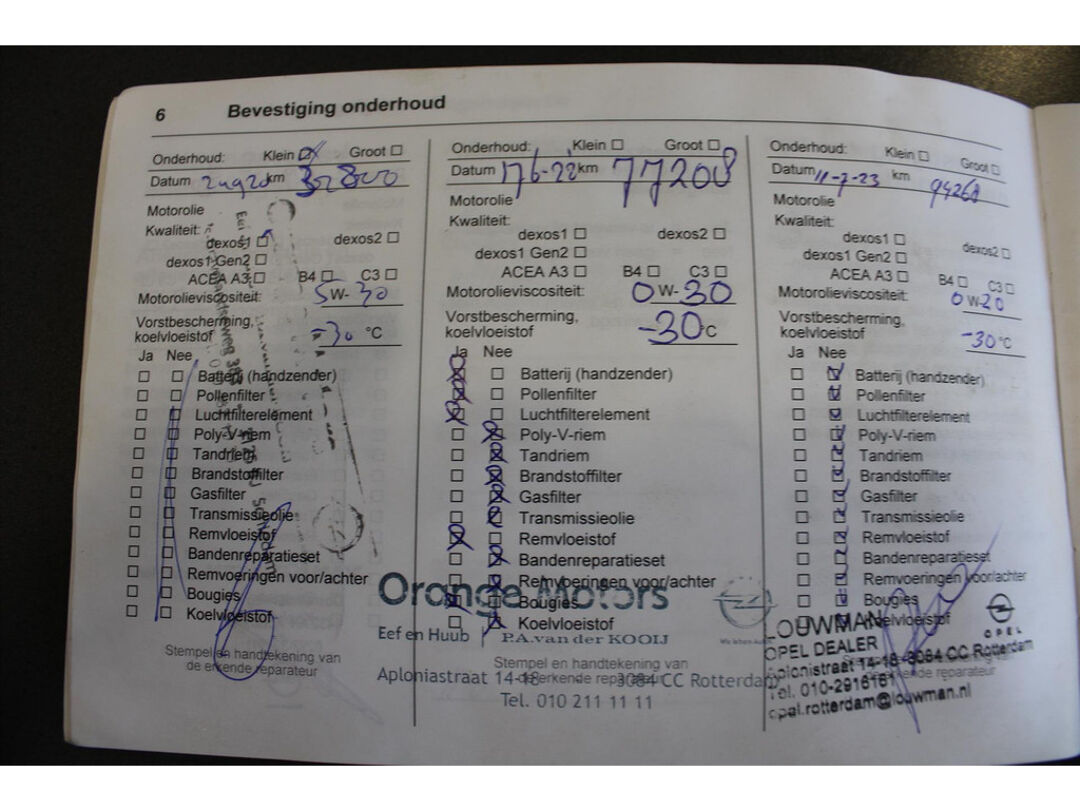 6 Bevestiging onderhoud
Onderhoud: Klein Groot
Datum km 32800
Motorolie
Kwaliteit:
dexos1 dexos2
dexos1 Gen2
ACEA A3 B4 C3
Motorolieviscositeit: 5W-30
Vorstbescherming,
koelvloeistof -30 °C
Ja Nee
Batterij (handzender)
Pollenfilter
Luchtfilterelement
Poly-V-riem
Tandriem
Brandstoffilter
Gasfilter
Transmissieolie
Remvloeistof
Bandenreparatieset
Remvoeringen voor/achter
Bougies
Koelvloeistof
Stempel en handtekening van
de erkende reparateur
Onderhoud: Klein Groot
Datum 17 6-22 km 77208
Motorolie
Kwaliteit:
dexos1 dexos2
dexos1 Gen2
ACEA A3 B4 C3
Motorolieviscositeit: 0W-30
Vorstbescherming,
koelvloeistof -30 °C
Ja Nee
Batterij (handzender)
Pollenfilter
Luchtfilterelement
Poly-V-riem
Tandriem
Brandstoffilter
Gasfilter
Transmissieolie
Remvloeistof
Bandenreparatieset
Remvoeringen voor/achter
Bougies
Koelvloeistof
Stempel en handtekening van
de erkende reparateur
Orange Motors
Eef en Huub P.A. van der KOOIJ
Aploniastraat 14-18 3084 CC Rotterdam
Tel. 010 211 11 11
Onderhoud: Klein Groot
Datum 11-7-23 km 94268
Motorolie
Kwaliteit:
dexos1 dexos2
dexos1 Gen2
ACEA A3 B4 C3
Motorolieviscositeit: 0W-20
Vorstbescherming,
koelvloeistof -30 °C
Ja Nee
Batterij (handzender)
Pollenfilter
Luchtfilterelement
Poly-V-riem
Tandriem
Brandstoffilter
Gasfilter
Transmissieolie
Remvloeistof
Bandenreparatieset
Remvoeringen voor/achter
Bougies
Koelvloeistof
LOUWMAN
OPEL
OPEL DEALER
Aploniastraat 14-18-3084 CC Rotterdam
Tel. 010-2916161
opel.rotterdam@louwman.nl